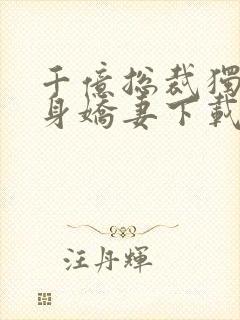 千億總裁獨
身嬌妻下載
汪丹輝